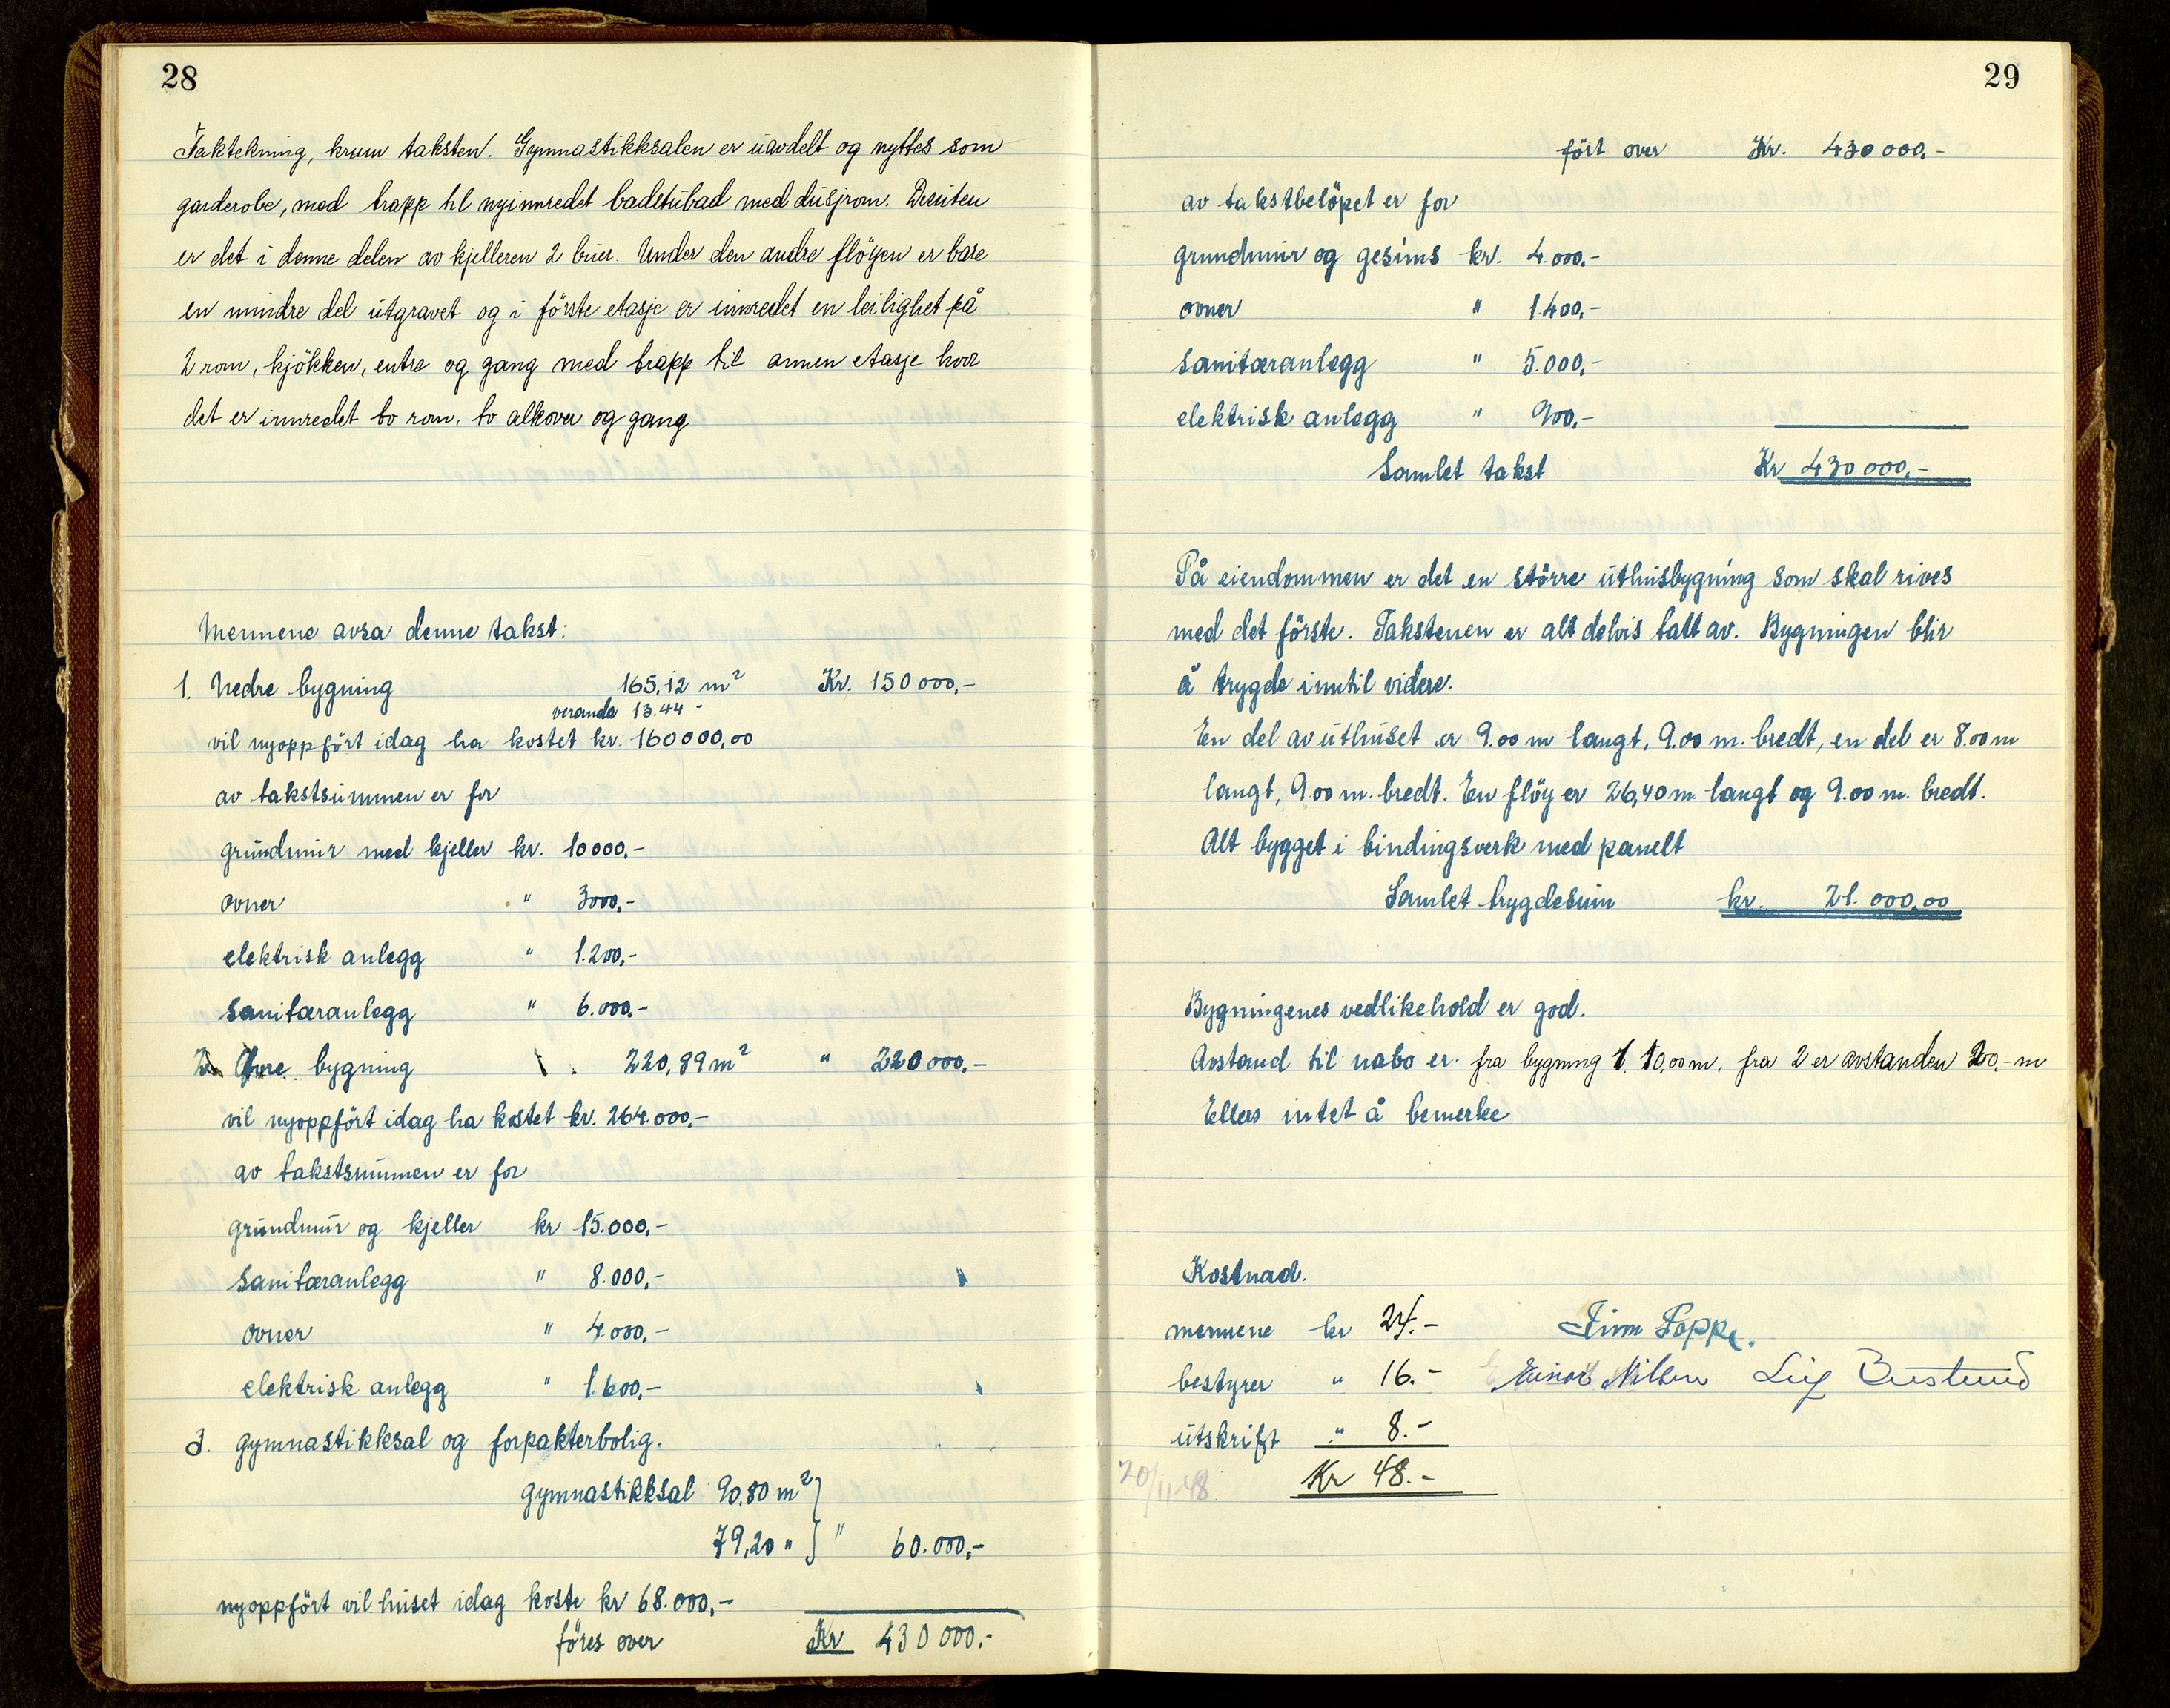 28
Taktekning, krum taksten. Gymnastikksalen er uavdelt og nyttes som
garderobe, med trapp til nyinnredet badstubad med dusjrom. Desuten
er det i denne delen av kjelleren 2 buer. Under den andre flöyen er bare
en mindre del utgravet og i förste etasje er innredet en leilighet på
2 rom, kjökken, entre og gang med trapp til annen etasje hvor
det er innredet to rom, to alkover og gang
Mennene avsa denne takst:
1. Nedre bygning 165,12 m² Kr. 150 000,-
veranda 13.44 -
vil nyoppfört idag ha kostet kr. 160 000,00
av takstsummen er for
grundmur med kjeller kr. 10 000,-
ovner " 3000,-
elektrisk anlegg " 1.200,-
sanitæranlegg " 6.000,-
2. Övre bygning 220,89 m² " 220 000,-
vil nyoppfört idag ha kostet kr. 264.000,-
av takstsummen er for
grundmur og kjeller kr 15.000,-
sanitæranlegg " 8.000,-
ovner " 4.000,-
elektrisk anlegg " 1.600,-
3. gymnastikksal og forpakterbolig.
gymnastikksal 90,80 m²
79,20 " } " 60.000,-
nyoppfört vil huset idag koste kr 68.000,-
föres over Kr 430 000,-
29
fört over Kr. 430 000,-
av takstbelöpet er for
grundmur og gesims kr. 4.000,-
ovner " 1.400,-
sanitæranlegg " 5.000,-
elektrisk anlegg " 900,-
Samlet takst Kr 430 000,-
På eiendommen er det en större uthusbygning som skal rives
med det förste. Takstenen er alt delvis tatt av. Bygningen blir
å trygde inntil videre.
En del av uthuset er 9.00 m langt, 9.00 m. bredt, en del er 8.00 m
langt, 9.00 m. bredt. En flöy er 26,40 m. langt og 9.00 m. bredt.
Alt bygget i bindingsverk med panelt
Samlet trygdesum kr. 21.000,00
Bygningenes vedlikehold er god.
Avstand til nabo er fra bygning 1. 10,00 m, fra 2 er avstanden 200,- m
Ellers intet å bemerke
Kostnad.
mennene kr 24.- Finn Poppe.
bestyrer " 16.- Einar Nilsen Leif
utskrift " 8.-
20/11-48. Kr 48.-